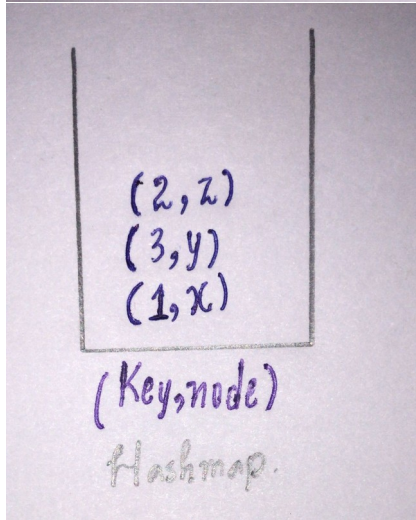 (2, z)
(3, y)
(1, x)
(Key, node)
Hashmap.